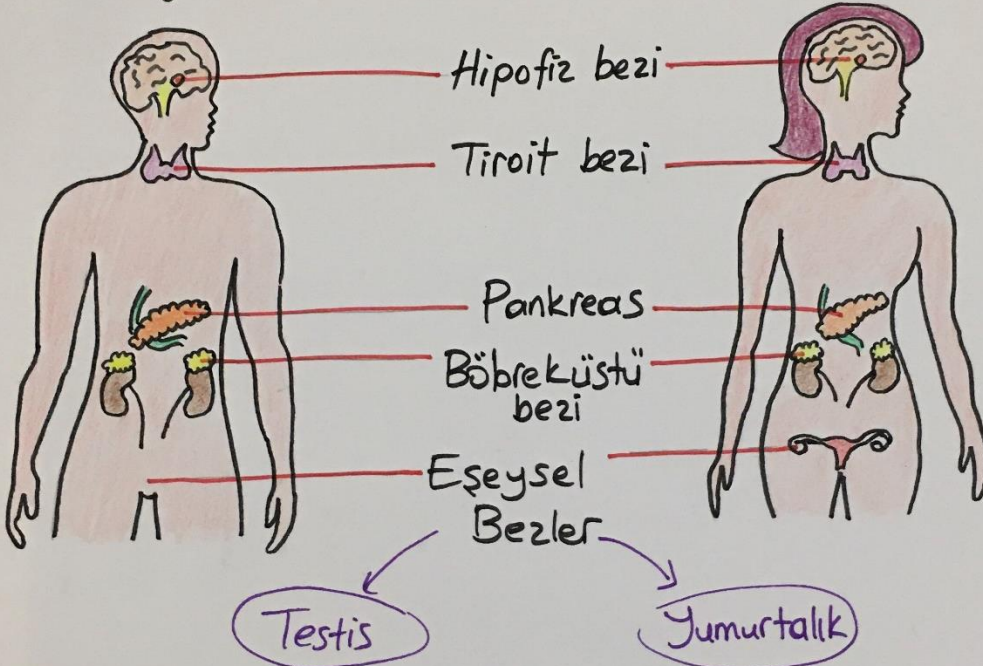 Hipofiz bezi
Tiroit bezi
Pankreas
Böbreküstü
bezi
Eşeysel
Bezler
Testis
Yumurtalık